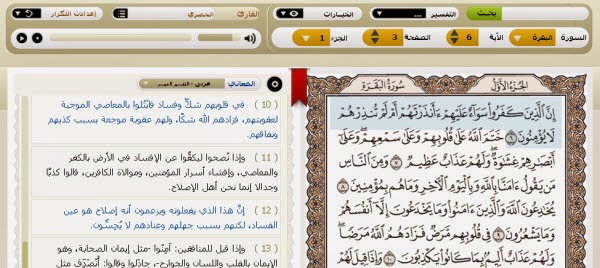 بحث
التفسير ...
الخيارات ...
القارئ
الحصري
إعدادت التكرار
السورة
البقرة
الآية
6
الصفحة
3
الجزء
1
المعاني
عربي - التفسير الميسر
( 10 ) في قلوبهم شكٌّ وفساد فابْتُلوا بالمعاصي الموجبة
لعقوبتهم، فزادهم الله شكًا، ولهم عقوبة موجعة بسبب كذبهم
ونفاقهم.
( 11 ) وإذا نُصحوا ليكفُّوا عن الإفساد في الأرض بالكفر
والمعاصي، وإفشاء أسرار المؤمنين، وموالاة الكافرين، قالوا كذبًا
وجدالا إنما نحن أهل الإصلاح.
( 12 ) إنَّ هذا الذي يفعلونه ويزعمون أنه إصلاح هو عين
الفساد، لكنهم بسبب جهلهم وعنادهم لا يُحِسُّون.
( 13 ) وإذا قيل للمنافقين: آمِنُوا -مثل إيمان الصحابة، وهو
الإيمان بالقلب واللسان والجوارح-، جادلوا وقالوا: أنُصَدِّق مثل
الجزء الأول
سورة البقرة
إِنَّ ٱلَّذِينَ كَفَرُوا۟ سَوَآءٌ عَلَيْهِمْ ءَأَنذَرْتَهُمْ أَمْ لَمْ تُنذِرْهُمْ
لَا يُؤْمِنُونَ ٦ خَتَمَ ٱللَّهُ عَلَىٰ قُلُوبِهِمْ وَعَلَىٰ سَمْعِهِمْ ۖ وَعَلَىٰٓ
أَبْصَٰرِهِمْ غِشَٰوَةٌ ۖ وَلَهُمْ عَذَابٌ عَظِيمٌ ٧ وَمِنَ ٱلنَّاسِ
مَن يَقُولُ ءَامَنَّا بِٱللَّهِ وَبِٱلْيَوْمِ ٱلْءَاخِرِ وَمَا هُم بِمُؤْمِنِينَ ٨
يُخَٰدِعُونَ ٱللَّهَ وَٱلَّذِينَ ءَامَنُوا۟ وَمَا يَخْدَعُونَ إِلَّآ أَنفُسَهُمْ
وَمَا يَشْعُرُونَ ٩ فِى قُلُوبِهِم مَّرَضٌ فَزَادَهُمُ ٱللَّهُ مَرَضًا ۖ
وَلَهُمْ عَذَابٌ أَلِيمٌۢ بِمَا كَانُوا۟ يَكْذِبُونَ ١٠ وَإِذَا قِيلَ لَهُمْ